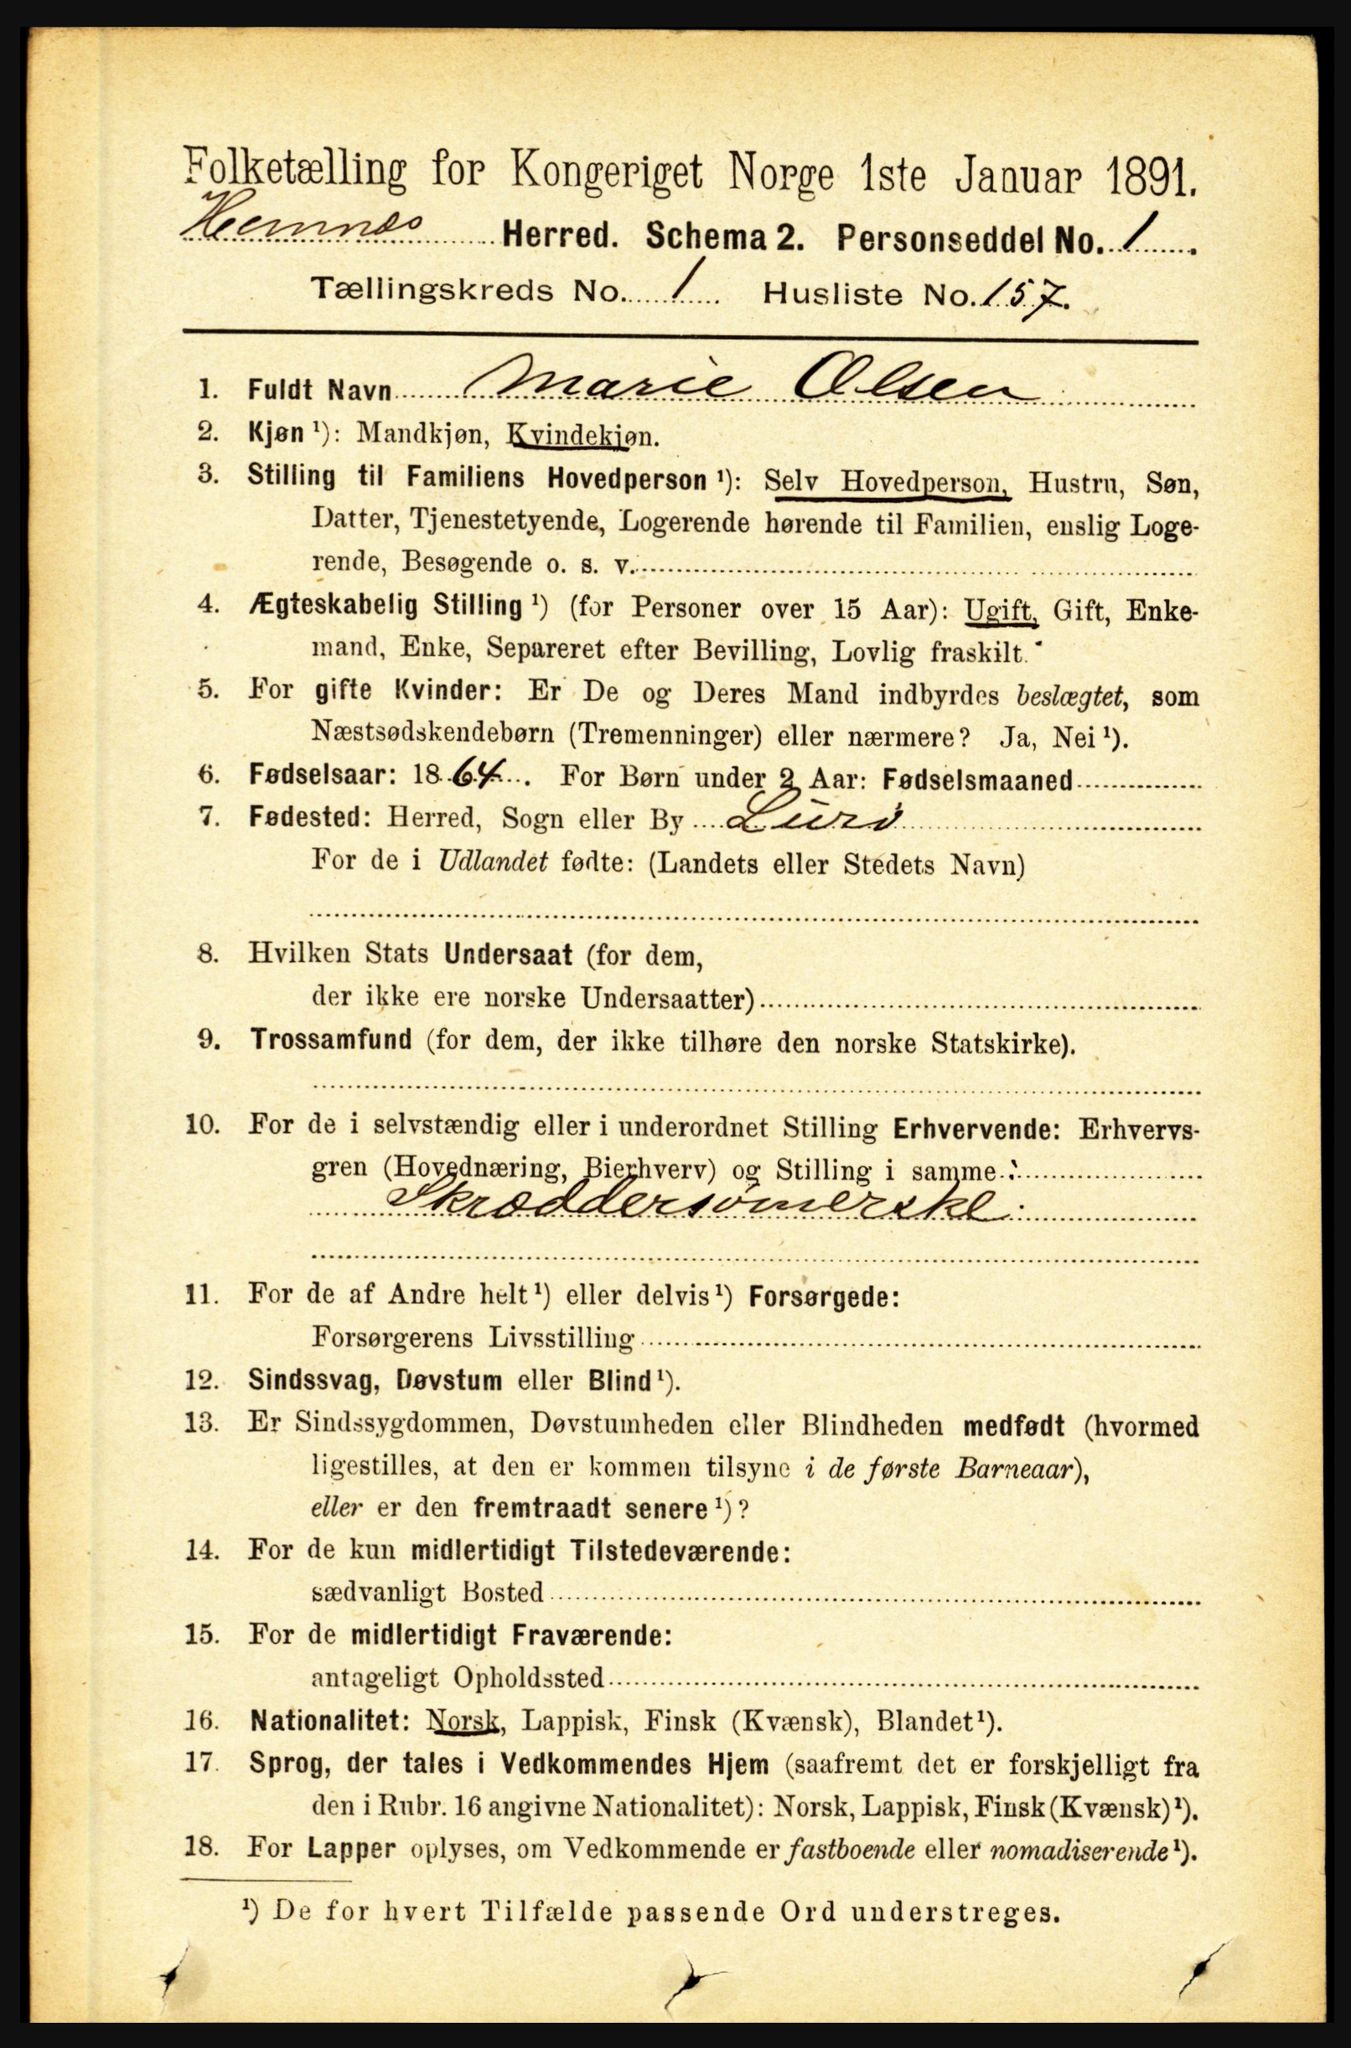 Folketælling for Kongeriget Norge 1ste Januar 1891.
Hemnæs Herred. Schema 2. Personseddel No. 1.
Tællingskreds No. 1 Husliste No. 157.
1. Fuldt Navn Marie Olsen
2. Kjøn ¹): Mandkjøn, Kvindekjøn.
3. Stilling til Familiens Hovedperson ¹): Selv Hovedperson, Hustru, Søn,
Datter, Tjenestetyende, Logerende hørende til Familien, enslig Loge-
rende, Besøgende o. s. v.
4. Ægteskabelig Stilling ¹) (for Personer over 15 Aar): Ugift, Gift, Enke-
mand, Enke, Separeret efter Bevilling, Lovlig fraskilt.
5. For gifte Kvinder: Er De og Deres Mand indbyrdes beslægtet, som
Næstsødskendebørn (Tremenninger) eller nærmere? Ja, Nei ¹).
6. Fødselsaar: 1864. For Børn under 2 Aar: Fødselsmaaned
7. Fødested: Herred, Sogn eller By Lurø
For de i Udlandet fødte: (Landets eller Stedets Navn)
8. Hvilken Stats Undersaat (for dem,
der ikke ere norske Undersaatter)
9. Trossamfund (for dem, der ikke tilhøre den norske Statskirke).
10. For de i selvstændig eller i underordnet Stilling Erhvervende: Erhvervs-
gren (Hovednæring, Bierhverv) og Stilling i samme :
Skræddersømerske.
11. For de af Andre helt ¹) eller delvis ¹) Forsørgede:
Forsørgerens Livsstilling
12. Sindssvag, Døvstum eller Blind ¹).
13. Er Sindssygdommen, Døvstumheden eller Blindheden medfødt (hvormed
ligestilles, at den er kommen tilsyne i de første Barneaar),
eller er den fremtraadt senere ¹)?
14. For de kun midlertidigt Tilstedeværende:
sædvanligt Bosted
15. For de midlertidigt Fraværende:
antageligt Opholdssted
16. Nationalitet: Norsk, Lappisk, Finsk (Kvænsk), Blandet ¹).
17. Sprog, der tales i Vedkommendes Hjem (saafremt det er forskjelligt fra
den i Rubr. 16 angivne Nationalitet): Norsk, Lappisk, Finsk (Kvænsk) ¹).
18. For Lapper oplyses, om Vedkommende er fastboende eller nomadiserende ¹).
¹) De for hvert Tilfælde passende Ord understreges.